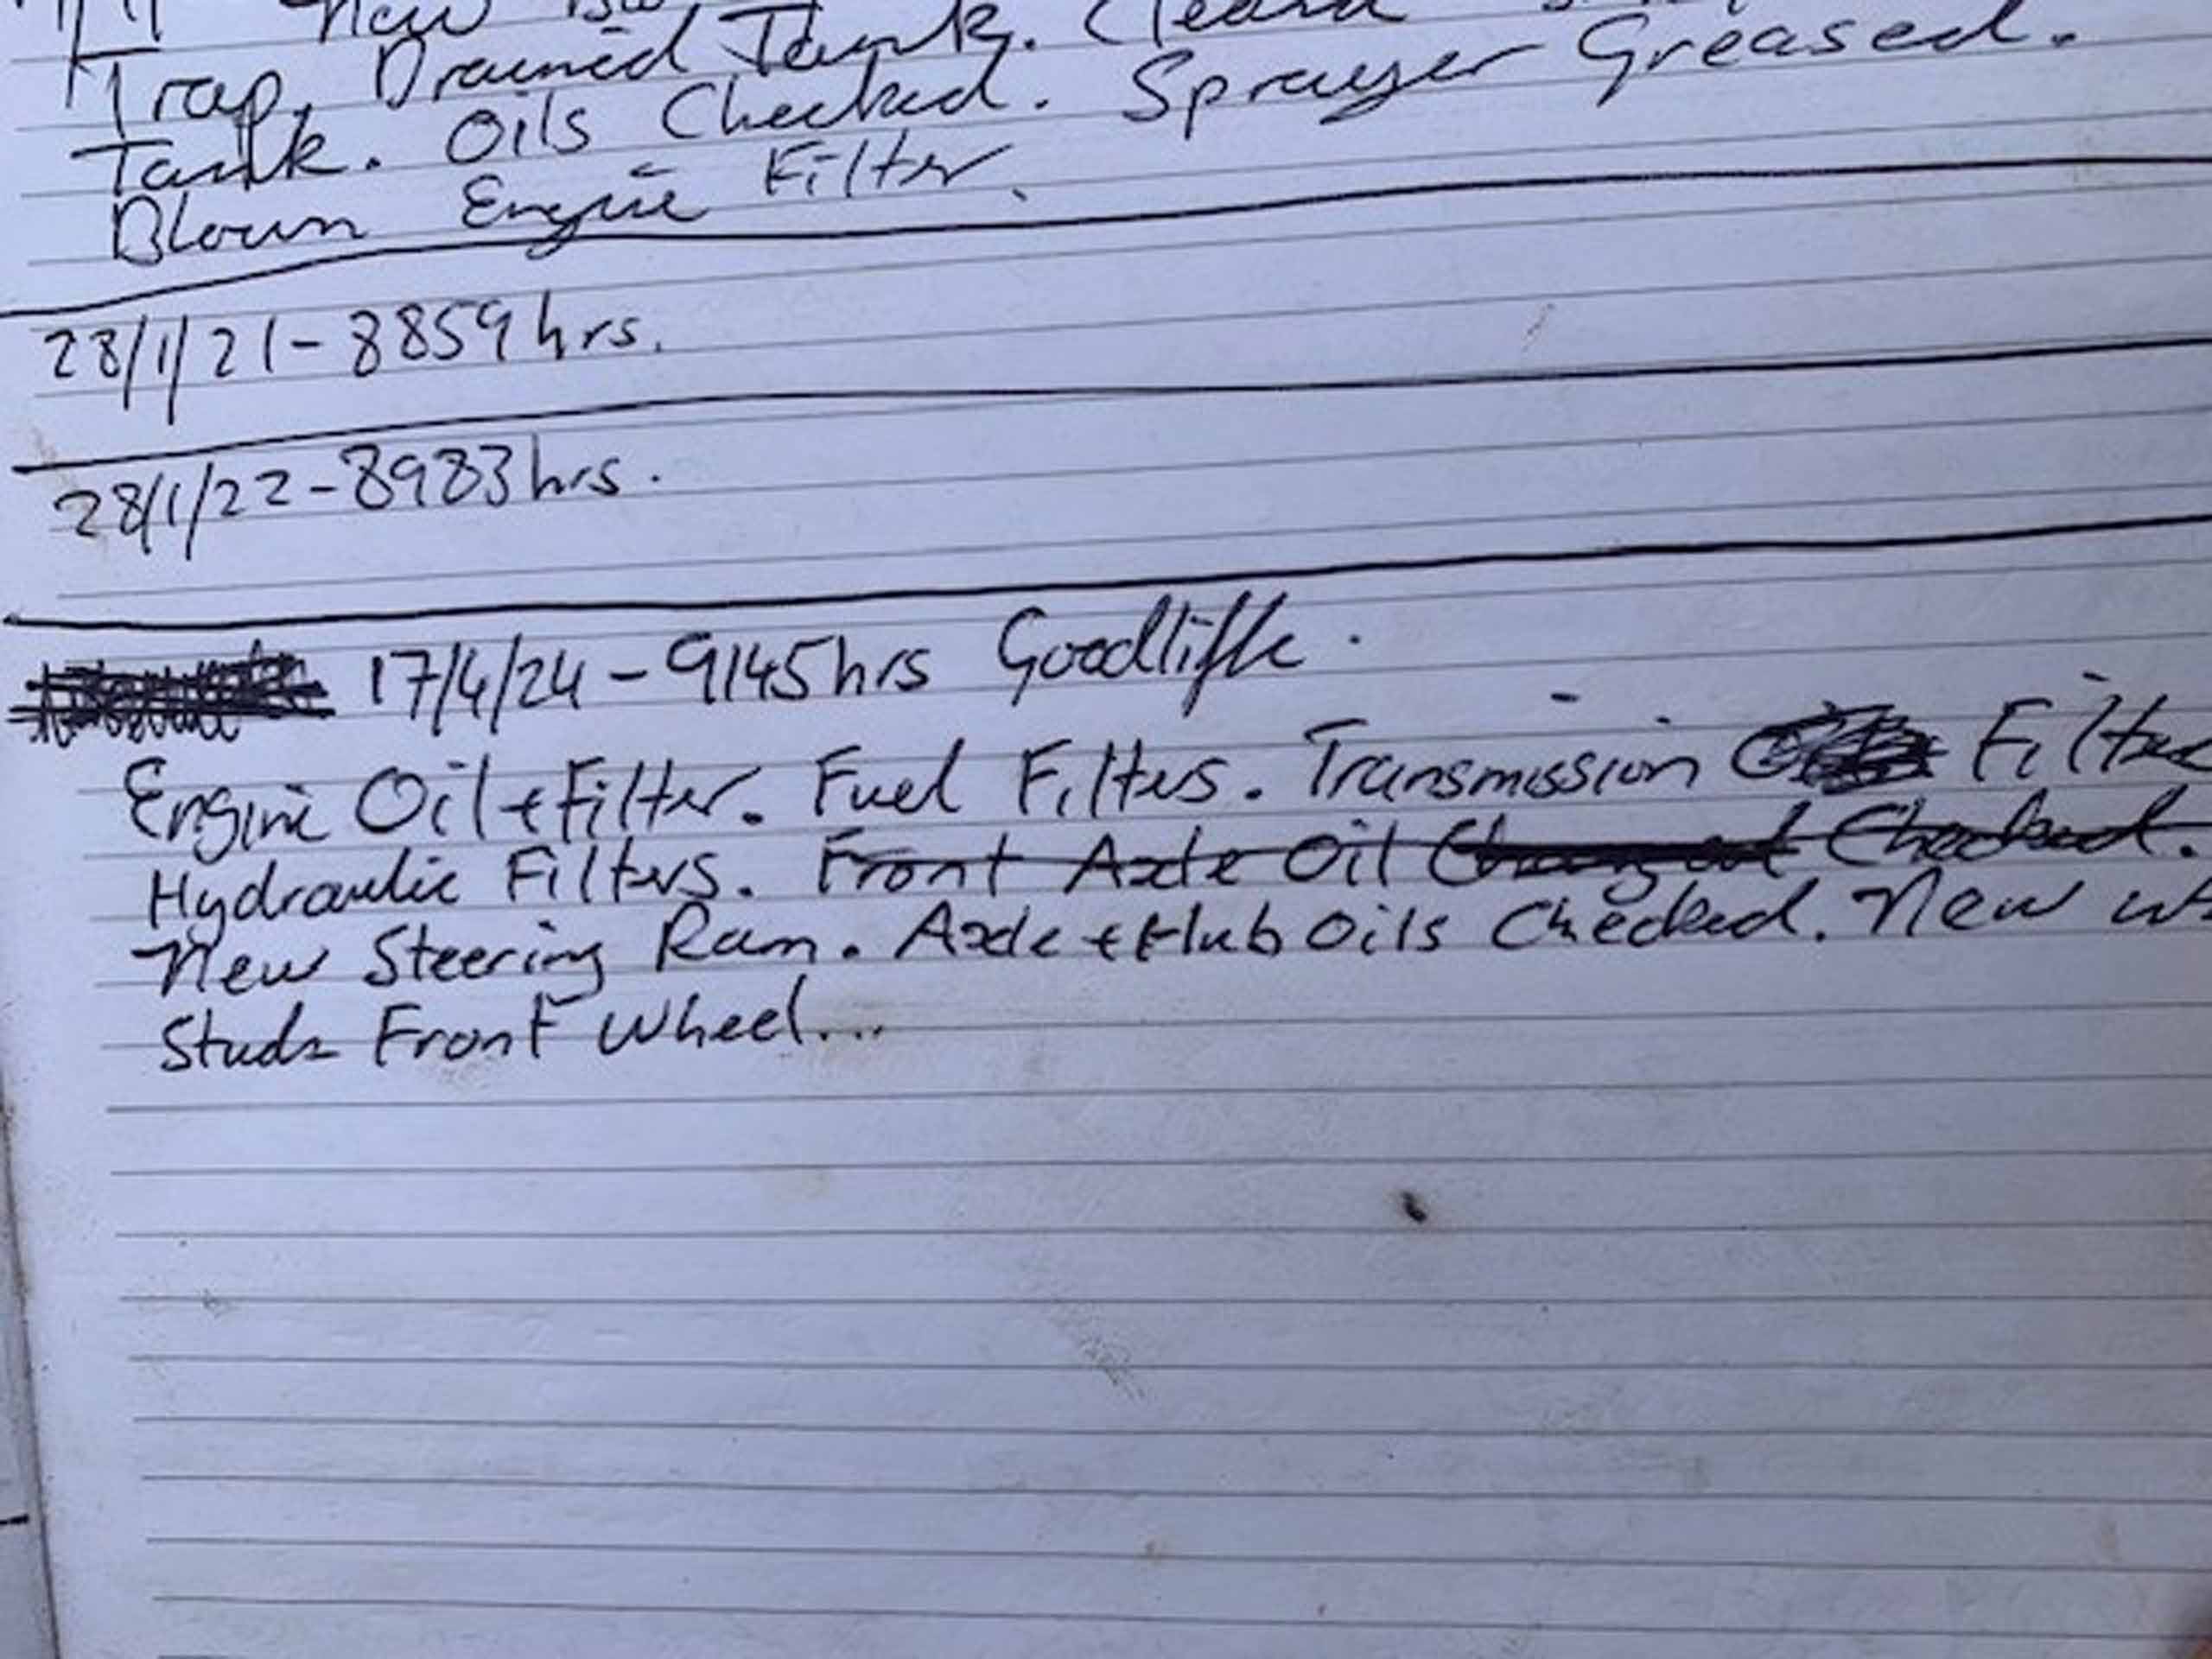 New
Trap. Drained Tank. Cleand
Tank. Oils Checked. Sprayer Greased.
Blown Engine Filter.
28/1/21-8859hrs.
28/1/22-8983hrs.
17/4/24-9145hrs Goodliffe.
Engine Oil+Filter. Fuel Filters. Transmission Filter
Hydraulic Filters. Front Axle Oil Changed Checked.
New Steering Ram. Axle + Hub Oils Checked. New
Studs Front Wheel...